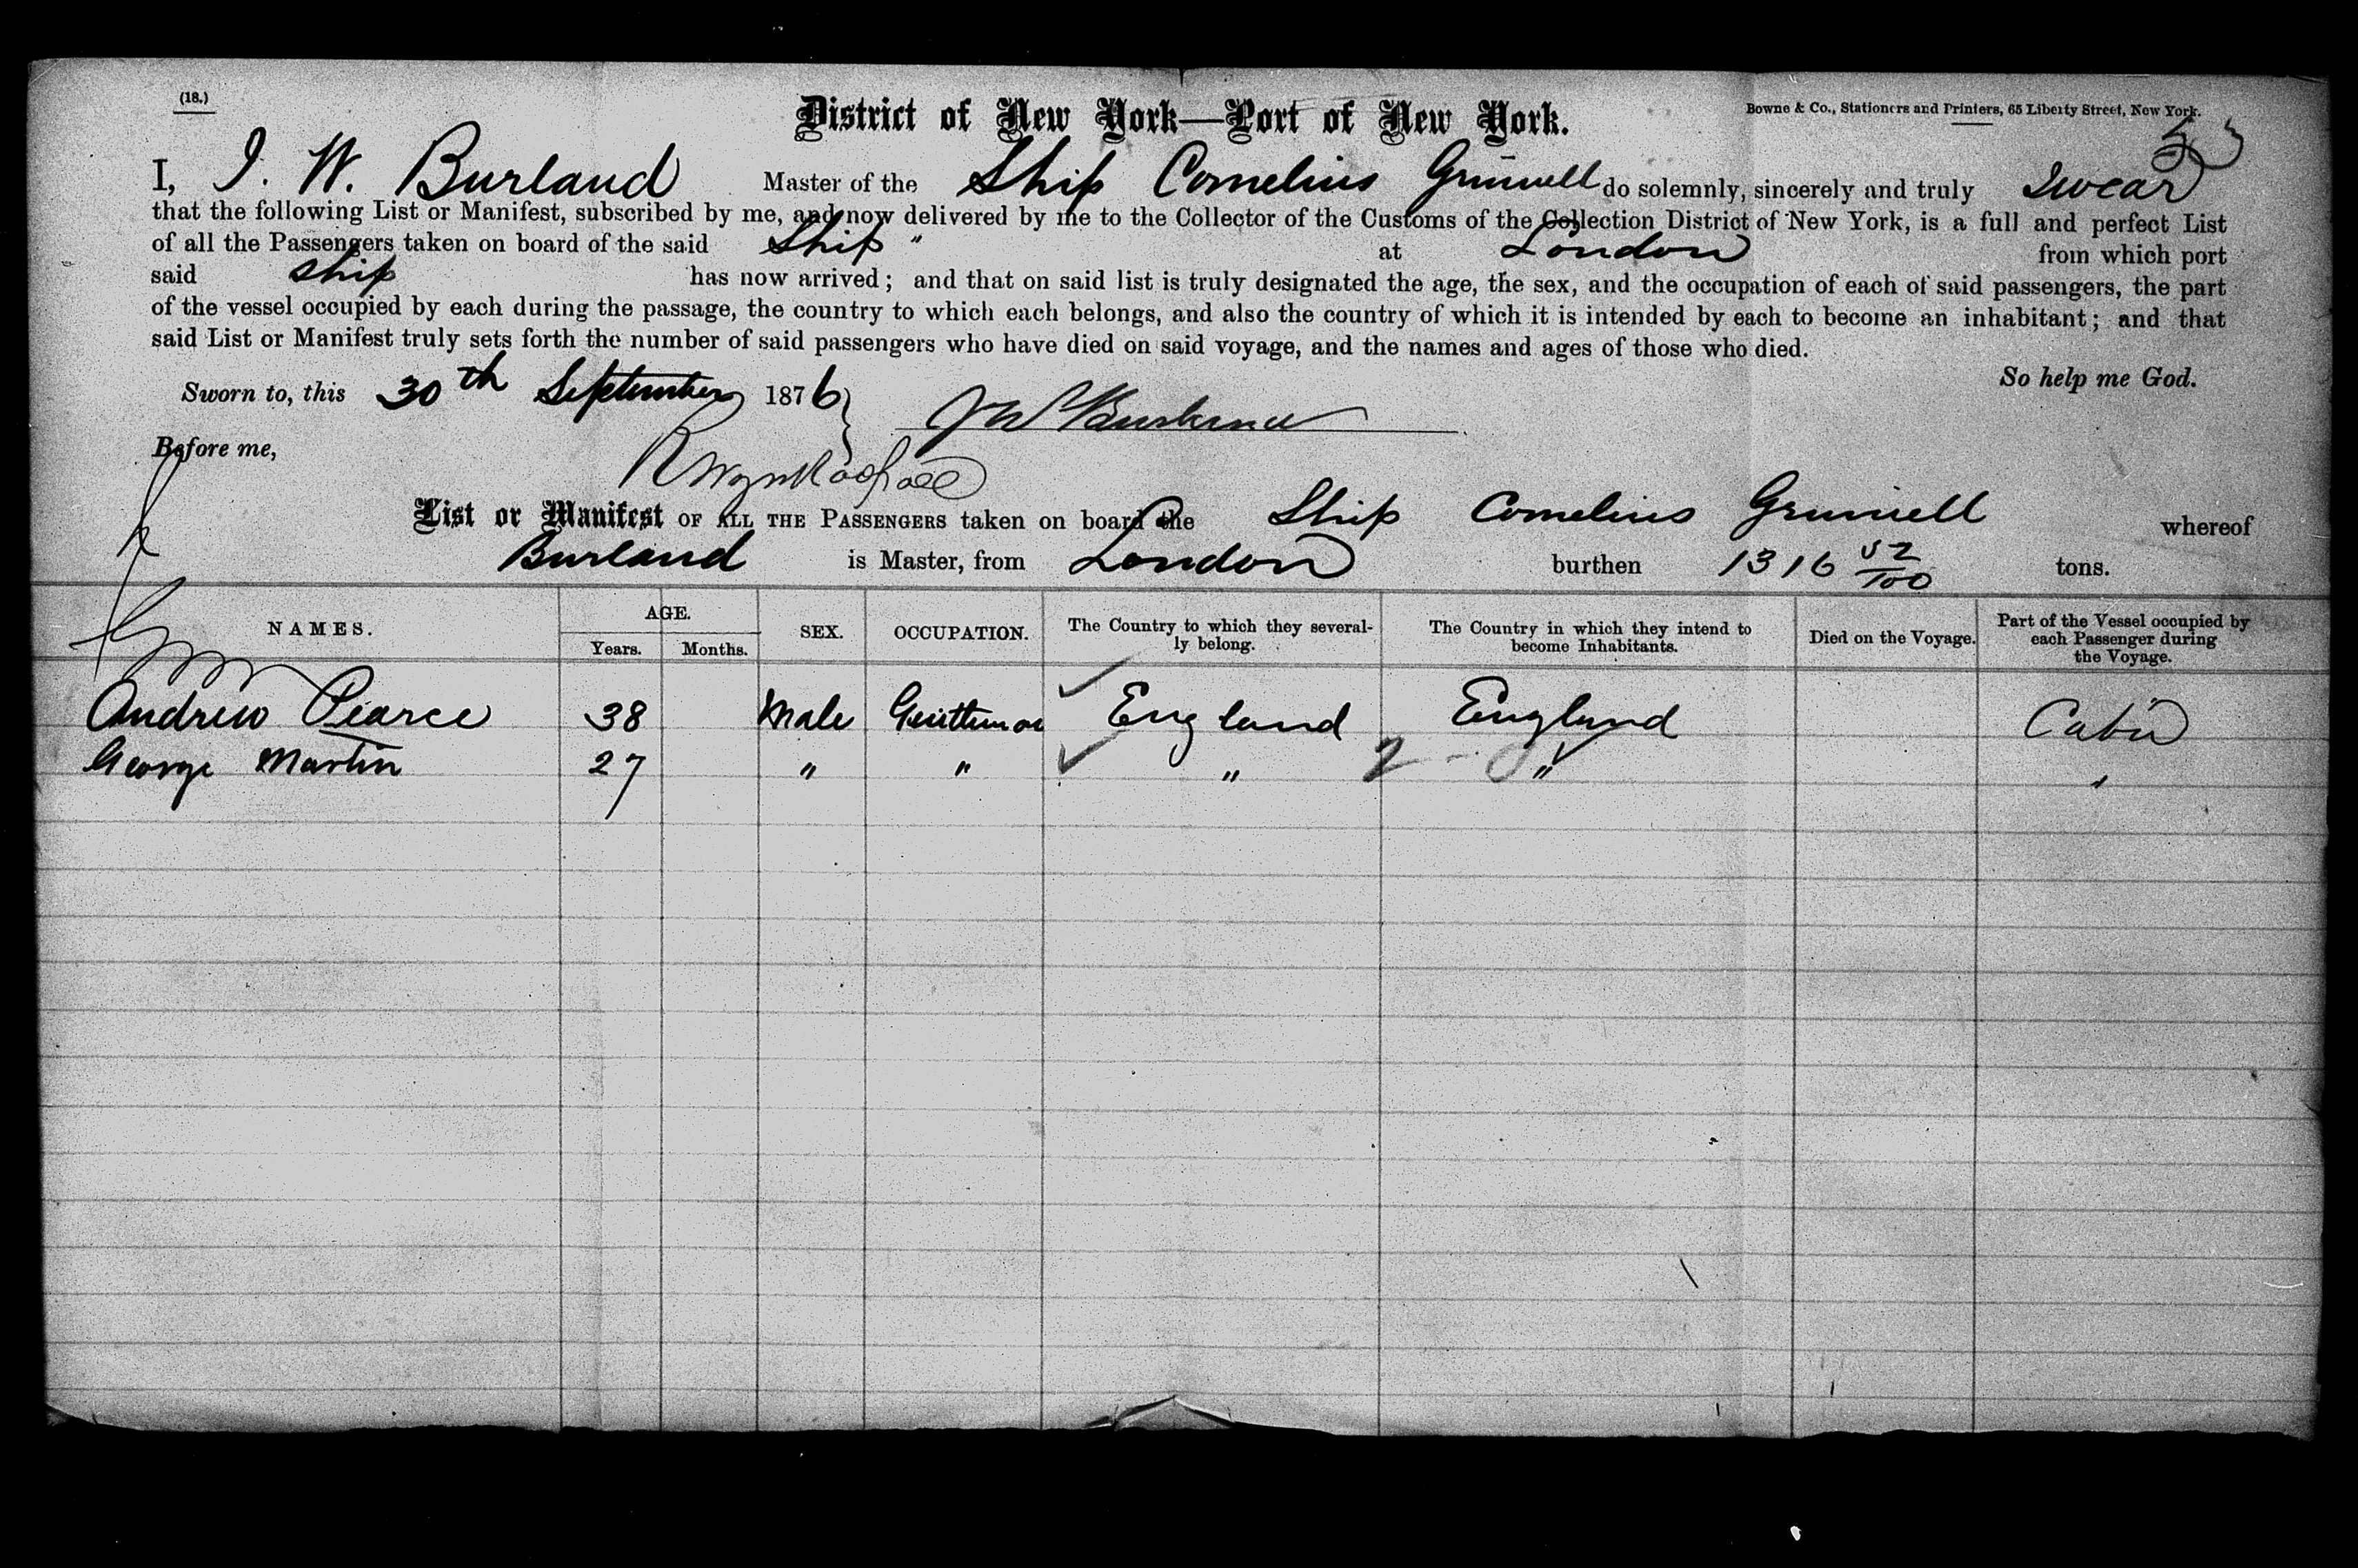 (18.)
District of New York—Port of New York.
Bowne & Co., Stationers and Printers, 65 Liberty Street, New York.
I, J. W. Burland Master of the Ship Cornelius Grinnell do solemnly, sincerely and truly swear
that the following List or Manifest, subscribed by me, and now delivered by me to the Collector of the Customs of the Collection District of New York, is a full and perfect List
of all the Passengers taken on board of the said Ship " at London from which port
said ship has now arrived; and that on said list is truly designated the age, the sex, and the occupation of each of said passengers, the part
of the vessel occupied by each during the passage, the country to which each belongs, and also the country of which it is intended by each to become an inhabitant; and that
said List or Manifest truly sets forth the number of said passengers who have died on said voyage, and the names and ages of those who died.
So help me God.
Sworn to, this 30th September 1876
J W Burland
Before me,
List or Manifest OF ALL THE PASSENGERS taken on board the Ship Cornelius Grinnell whereof
Burland is Master, from London burthen 1316 52/100 tons.
NAMES. AGE. Years. Months. SEX. OCCUPATION. The Country to which they severally belong. The Country in which they intend to become Inhabitants. Died on the Voyage. Part of the Vessel occupied by each Passenger during the Voyage.
Andrew Pearce 38 Male Gentleman England England Cabin
George Martin 27 " " " " "